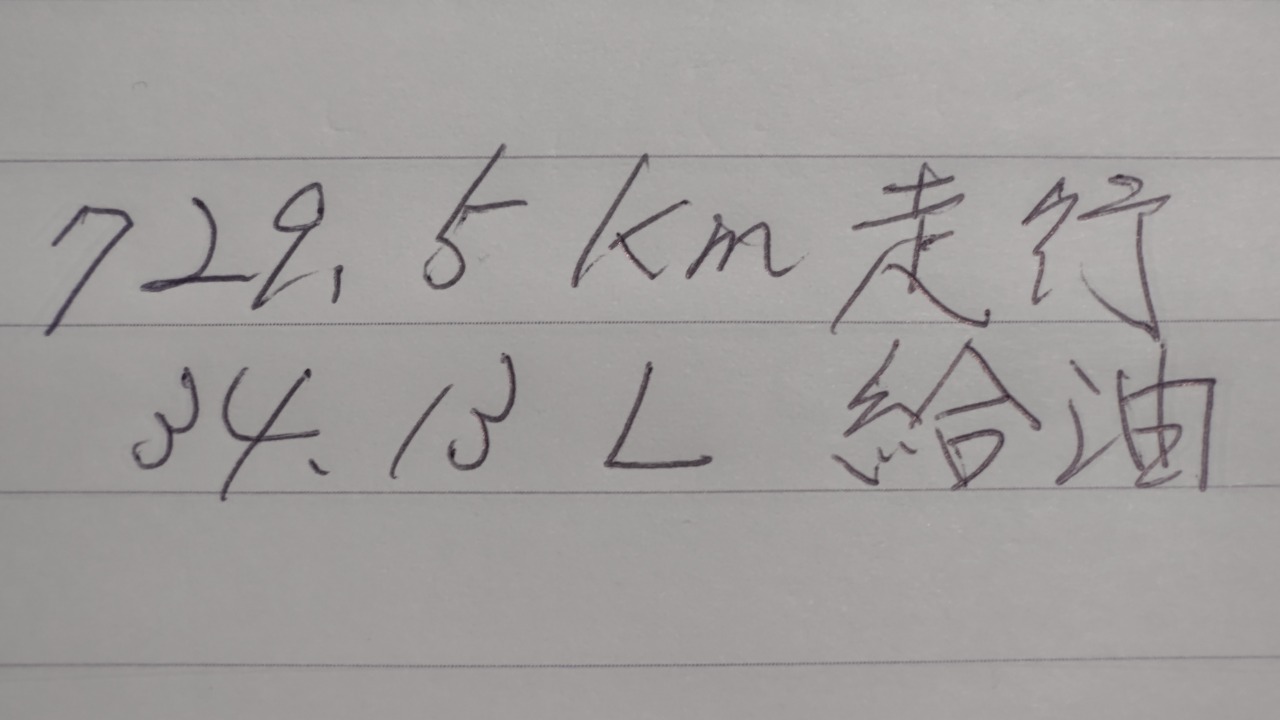 729.5km走行
34.13L 給油